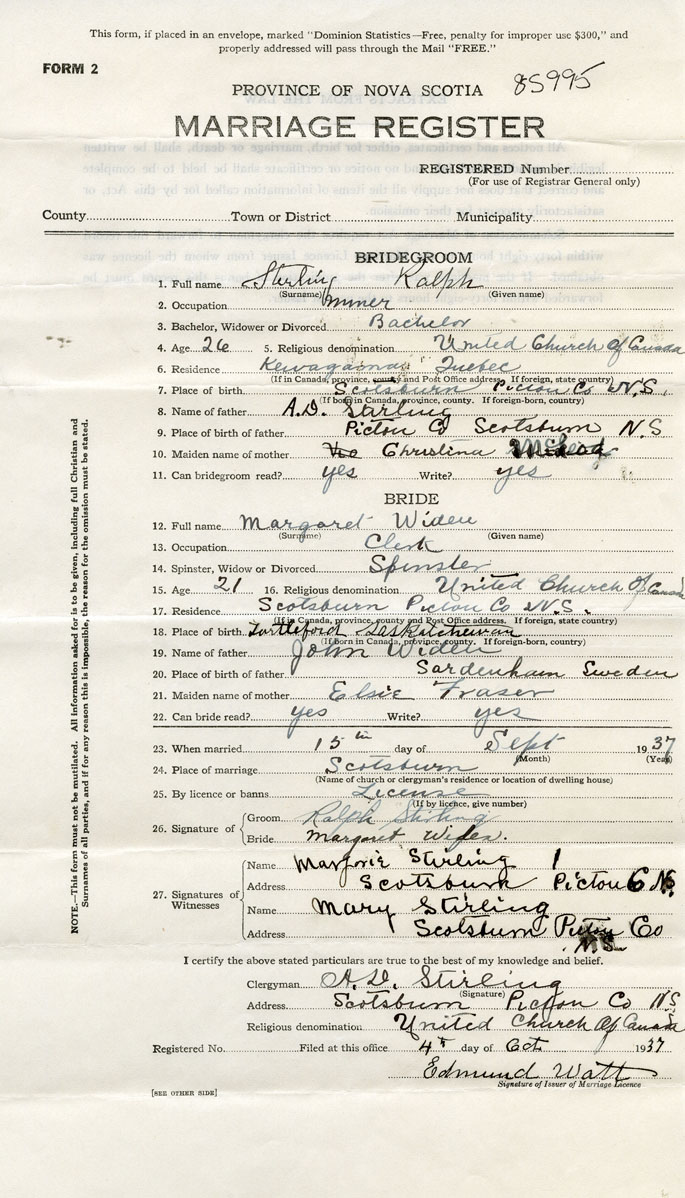 This form, if placed in an envelope, marked "Dominion Statistics—Free, penalty for improper use $300," and
properly addressed will pass through the Mail "FREE."
FORM 2
PROVINCE OF NOVA SCOTIA 85995
MARRIAGE REGISTER
REGISTERED Number
(For use of Registrar General only)
County Town or District Municipality
BRIDEGROOM
1. Full name Stirling Ralph
(Surname) (Given name)
2. Occupation miner
3. Bachelor, Widower or Divorced Bachelor
4. Age 26 5. Religious denomination United Church Of Canada
6. Residence Kewagama Quebec
(If in Canada, province, county and Post Office address. If foreign, state country)
7. Place of birth Scotsburn Pictou Co N.S.
(If born in Canada, province, county. If foreign-born, country)
8. Name of father A.D. Stirling
9. Place of birth of father Pictou Co Scotsburn N.S
10. Maiden name of mother Christina
11. Can bridegroom read? yes Write? yes
BRIDE
12. Full name Margaret Widen
(Surname) (Given name)
13. Occupation Clerk
14. Spinster, Widow or Divorced Spinster
15. Age 21 16. Religious denomination United Church Of Canada
17. Residence Scotsburn Pictou Co N.S.
(If in Canada, province, county and Post Office address. If foreign, state country)
18. Place of birth Turtleford Saskatchewan
(If born in Canada, province, county. If foreign-born, country)
19. Name of father John Widen
20. Place of birth of father Sardenham Sweden
21. Maiden name of mother Elsie Fraser
22. Can bride read? yes Write? yes
23. When married 15th day of Sept 1937
(Month) (Year)
24. Place of marriage Scotsburn
(Name of church or clergyman's residence or location of dwelling house)
25. By licence or banns License
(If by licence, give number)
26. Signature of
Groom Ralph Stirling
Bride Margaret Widen.
27. Signatures of Witnesses
Name Marjorie Stirling
Address Scotsburn Pictou Co NS.
Name Mary Stirling
Address Scotsburn Pictou Co
N.S.
I certify the above stated particulars are true to the best of my knowledge and belief.
Clergyman A.D. Stirling
(Signature)
Address Scotsburn Pictou Co NS
Religious denomination United Church Of Canada
Registered No. Filed at this office 4th day of Oct 1937
Edmund Watt
Signature of Issuer of Marriage Licence
[SEE OTHER SIDE]
NOTE.—This form must not be mutilated. All information asked for is to be given, including full Christian and
Surnames of all parties, and if for any reason this is impossible, the reason for the omission must be stated.